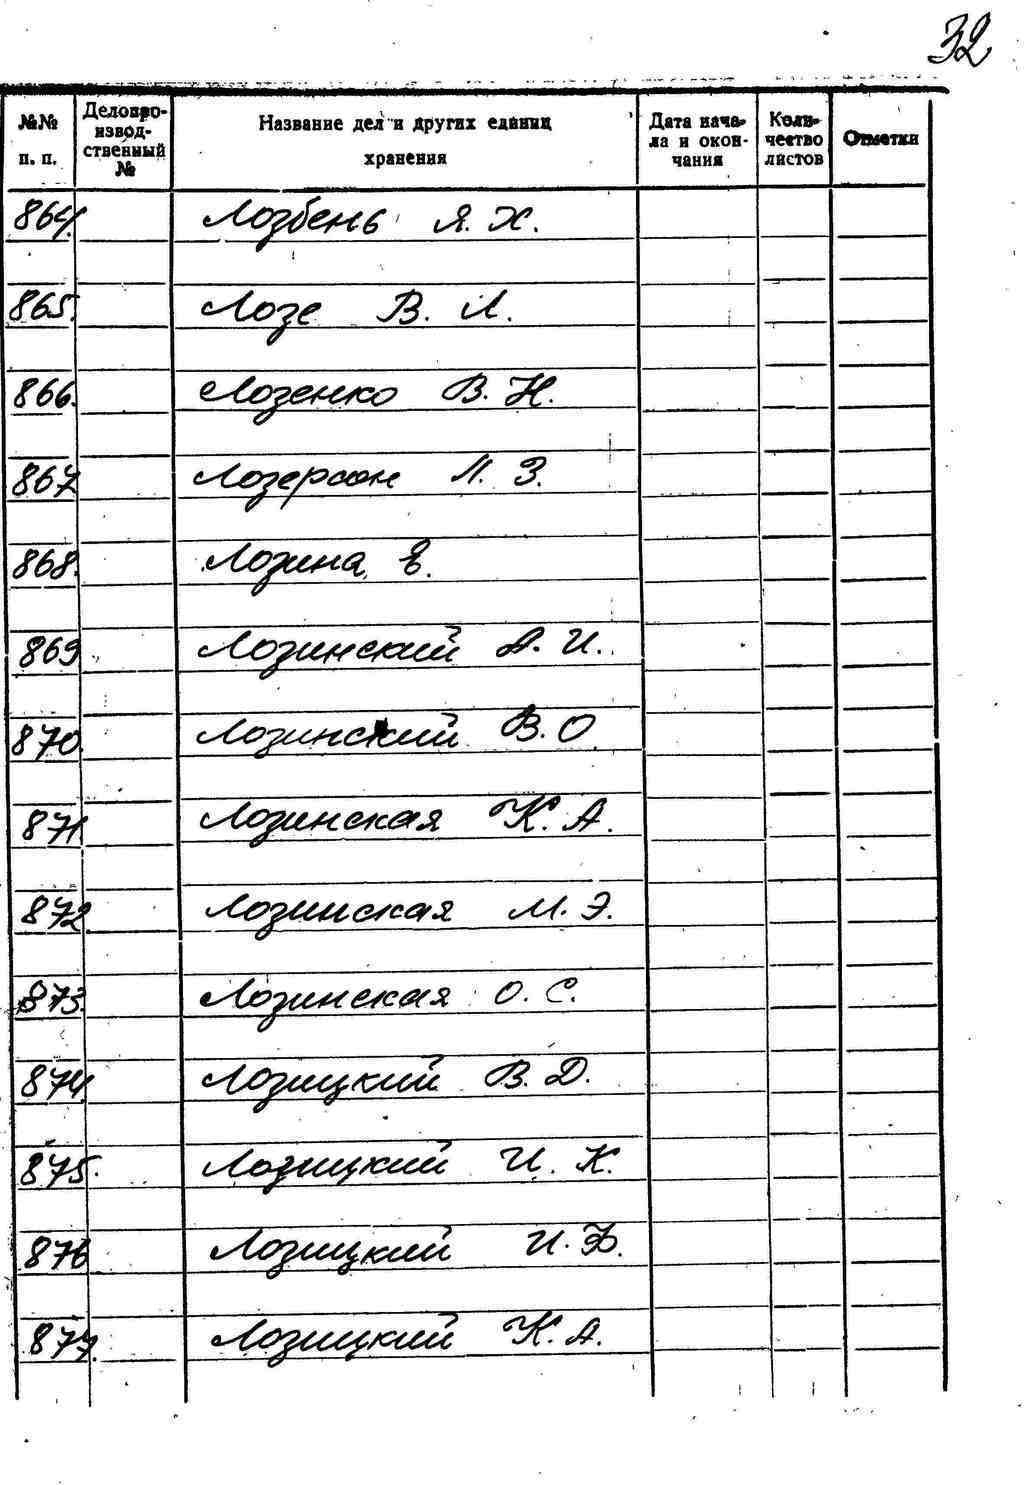 32
№№ п. п. Делопроизводственный № Название дел и других единиц хранения Дата начала и окончания Количество листов Отметки
864. Лозбень Я. Х.
865. Лозе В. Л.
866. Лозенко В. Н.
867 Лозерсон Л. З.
868. Лозина Е.
869 Лозинский А. И.
870. Лозинский В. О
871 Лозинская К. А.
872. Лозинская М. Э.
873. Лозинская О. С.
874. Лозицкий В. Д.
875. Лозицкий И. К.
876 Лозицкий И. Ф.
877. Лозицкий К. А.